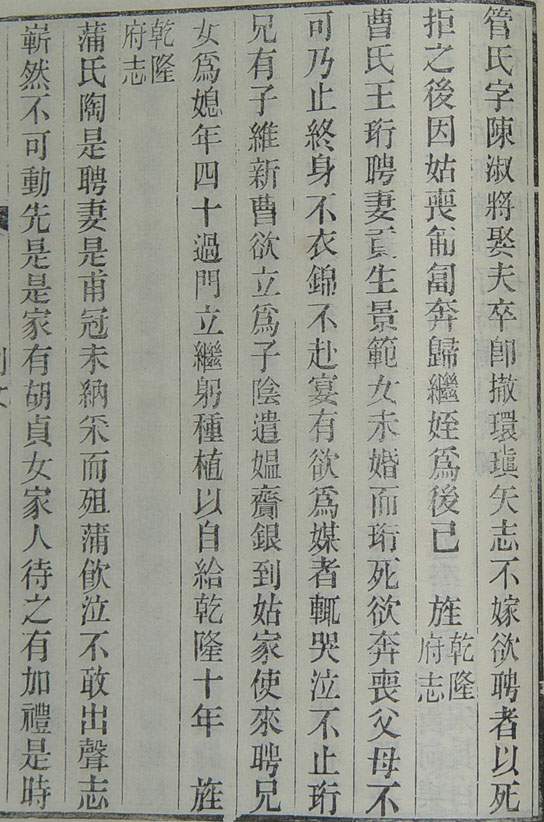 管氏字陳淑將娶夫卒卽撤環瑱矢志不嫁欲聘者以死
拒之後因姑喪匍匐奔歸繼姪爲後已 旌乾隆府志
曹氏王珩聘妻貢生景範女未婚而珩死欲奔喪父母不
可乃止終身不衣錦不赴宴有欲爲媒者輒哭泣不止珩
兄有子維新曹欲立爲子陰遣媼齎銀到姑家使來聘兄
女爲媳年四十過門立繼躬種植以自給乾隆十年 旌
乾隆府志
蒲氏陶是聘妻是甫冠未納采而殂蒲飮泣不敢出聲志
嶄然不可動先是是家有胡貞女家人待之有加禮是時